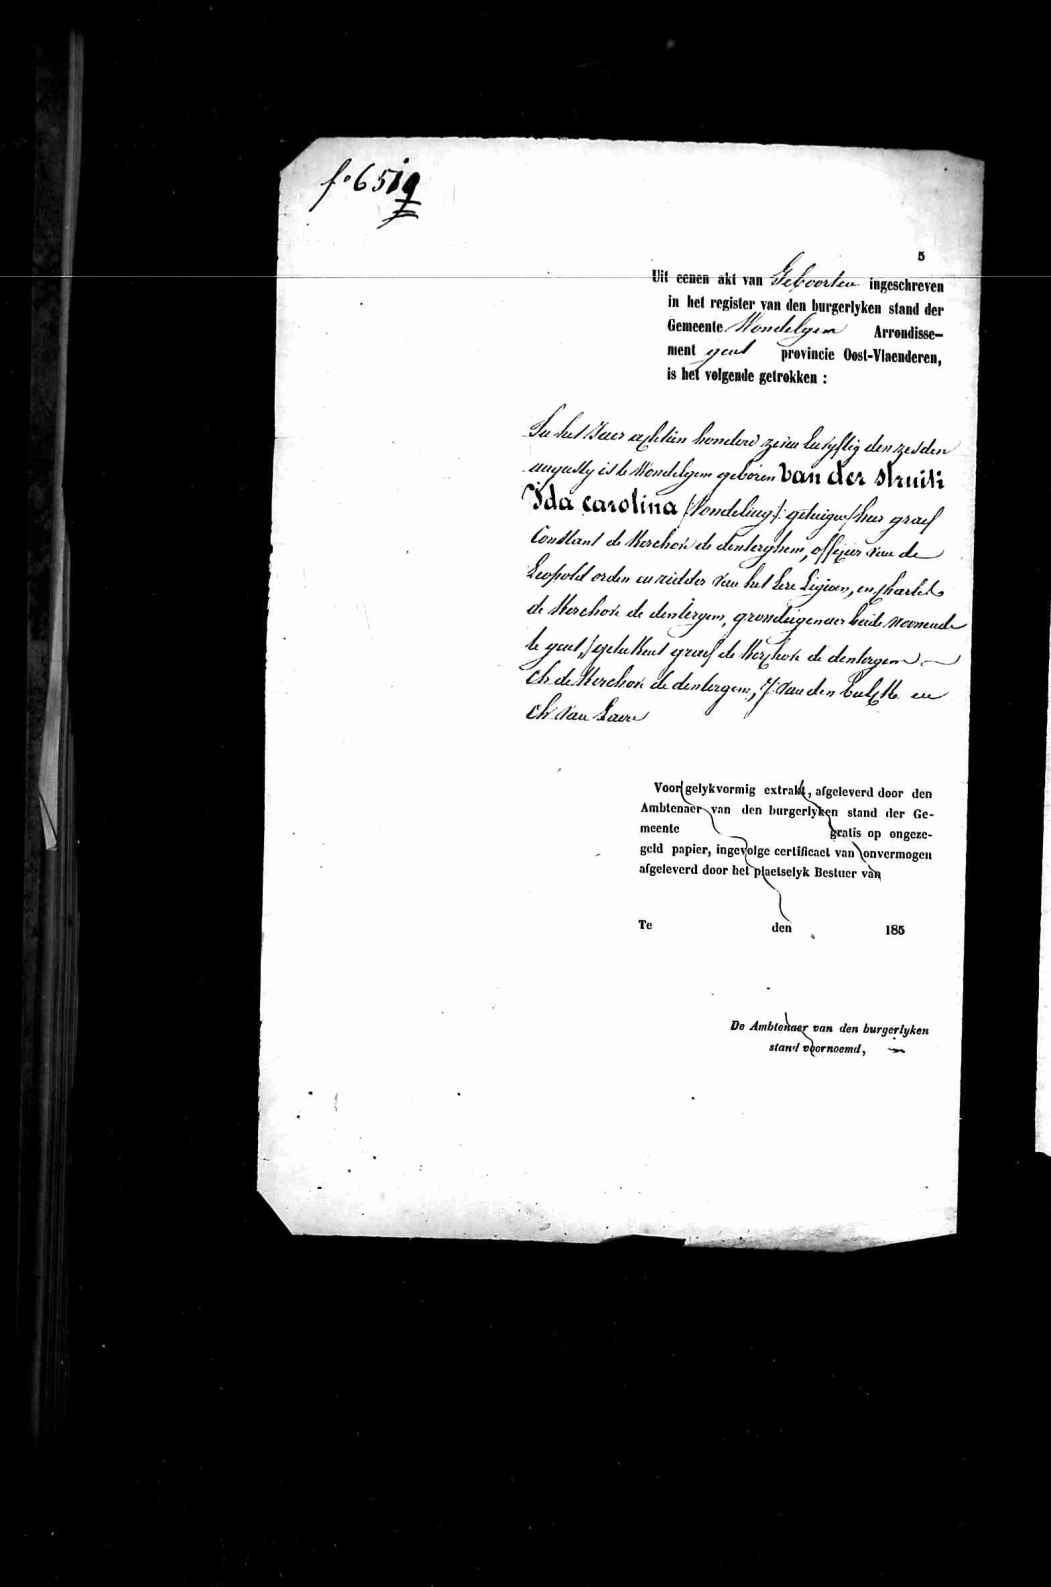 f° 65
5
Uit eenen akt van Geboorten ingeschreven
in het register van den burgerlyken stand der
Gemeente Wondelgem Arrondisse-
ment gent provincie Oost-Vlaenderen,
is het volgende getrokken :
In het Jaer achtien honderd zeven en vyftig den zesden
augusty is te Wondelgem geboren van der Struik
Ida Carolina /:Vondeling:/ getuigen heer graef
Constant de Kerchove de denterghem, officier van de
Leopold orden en ridder van het Eere Legioen, en Charles
de Kerchove de dentergem, grondeigenaer beide woonende
te gent, /getekent/ graef de Kerchove de dentergem
Ch. de Kerchove de dentergem, J. Van den en
Ch. Van Laere
Voor gelykvormig extrakt, afgeleverd door den
Ambtenaer van den burgerlyken stand der Ge-
meente gratis op ongeze-
geld papier, ingevolge certificaet van onvermogen
afgeleverd door het plaetselyk Bestuer van
Te den 185
De Ambtenaer van den burgerlyken
stand voornoemd,